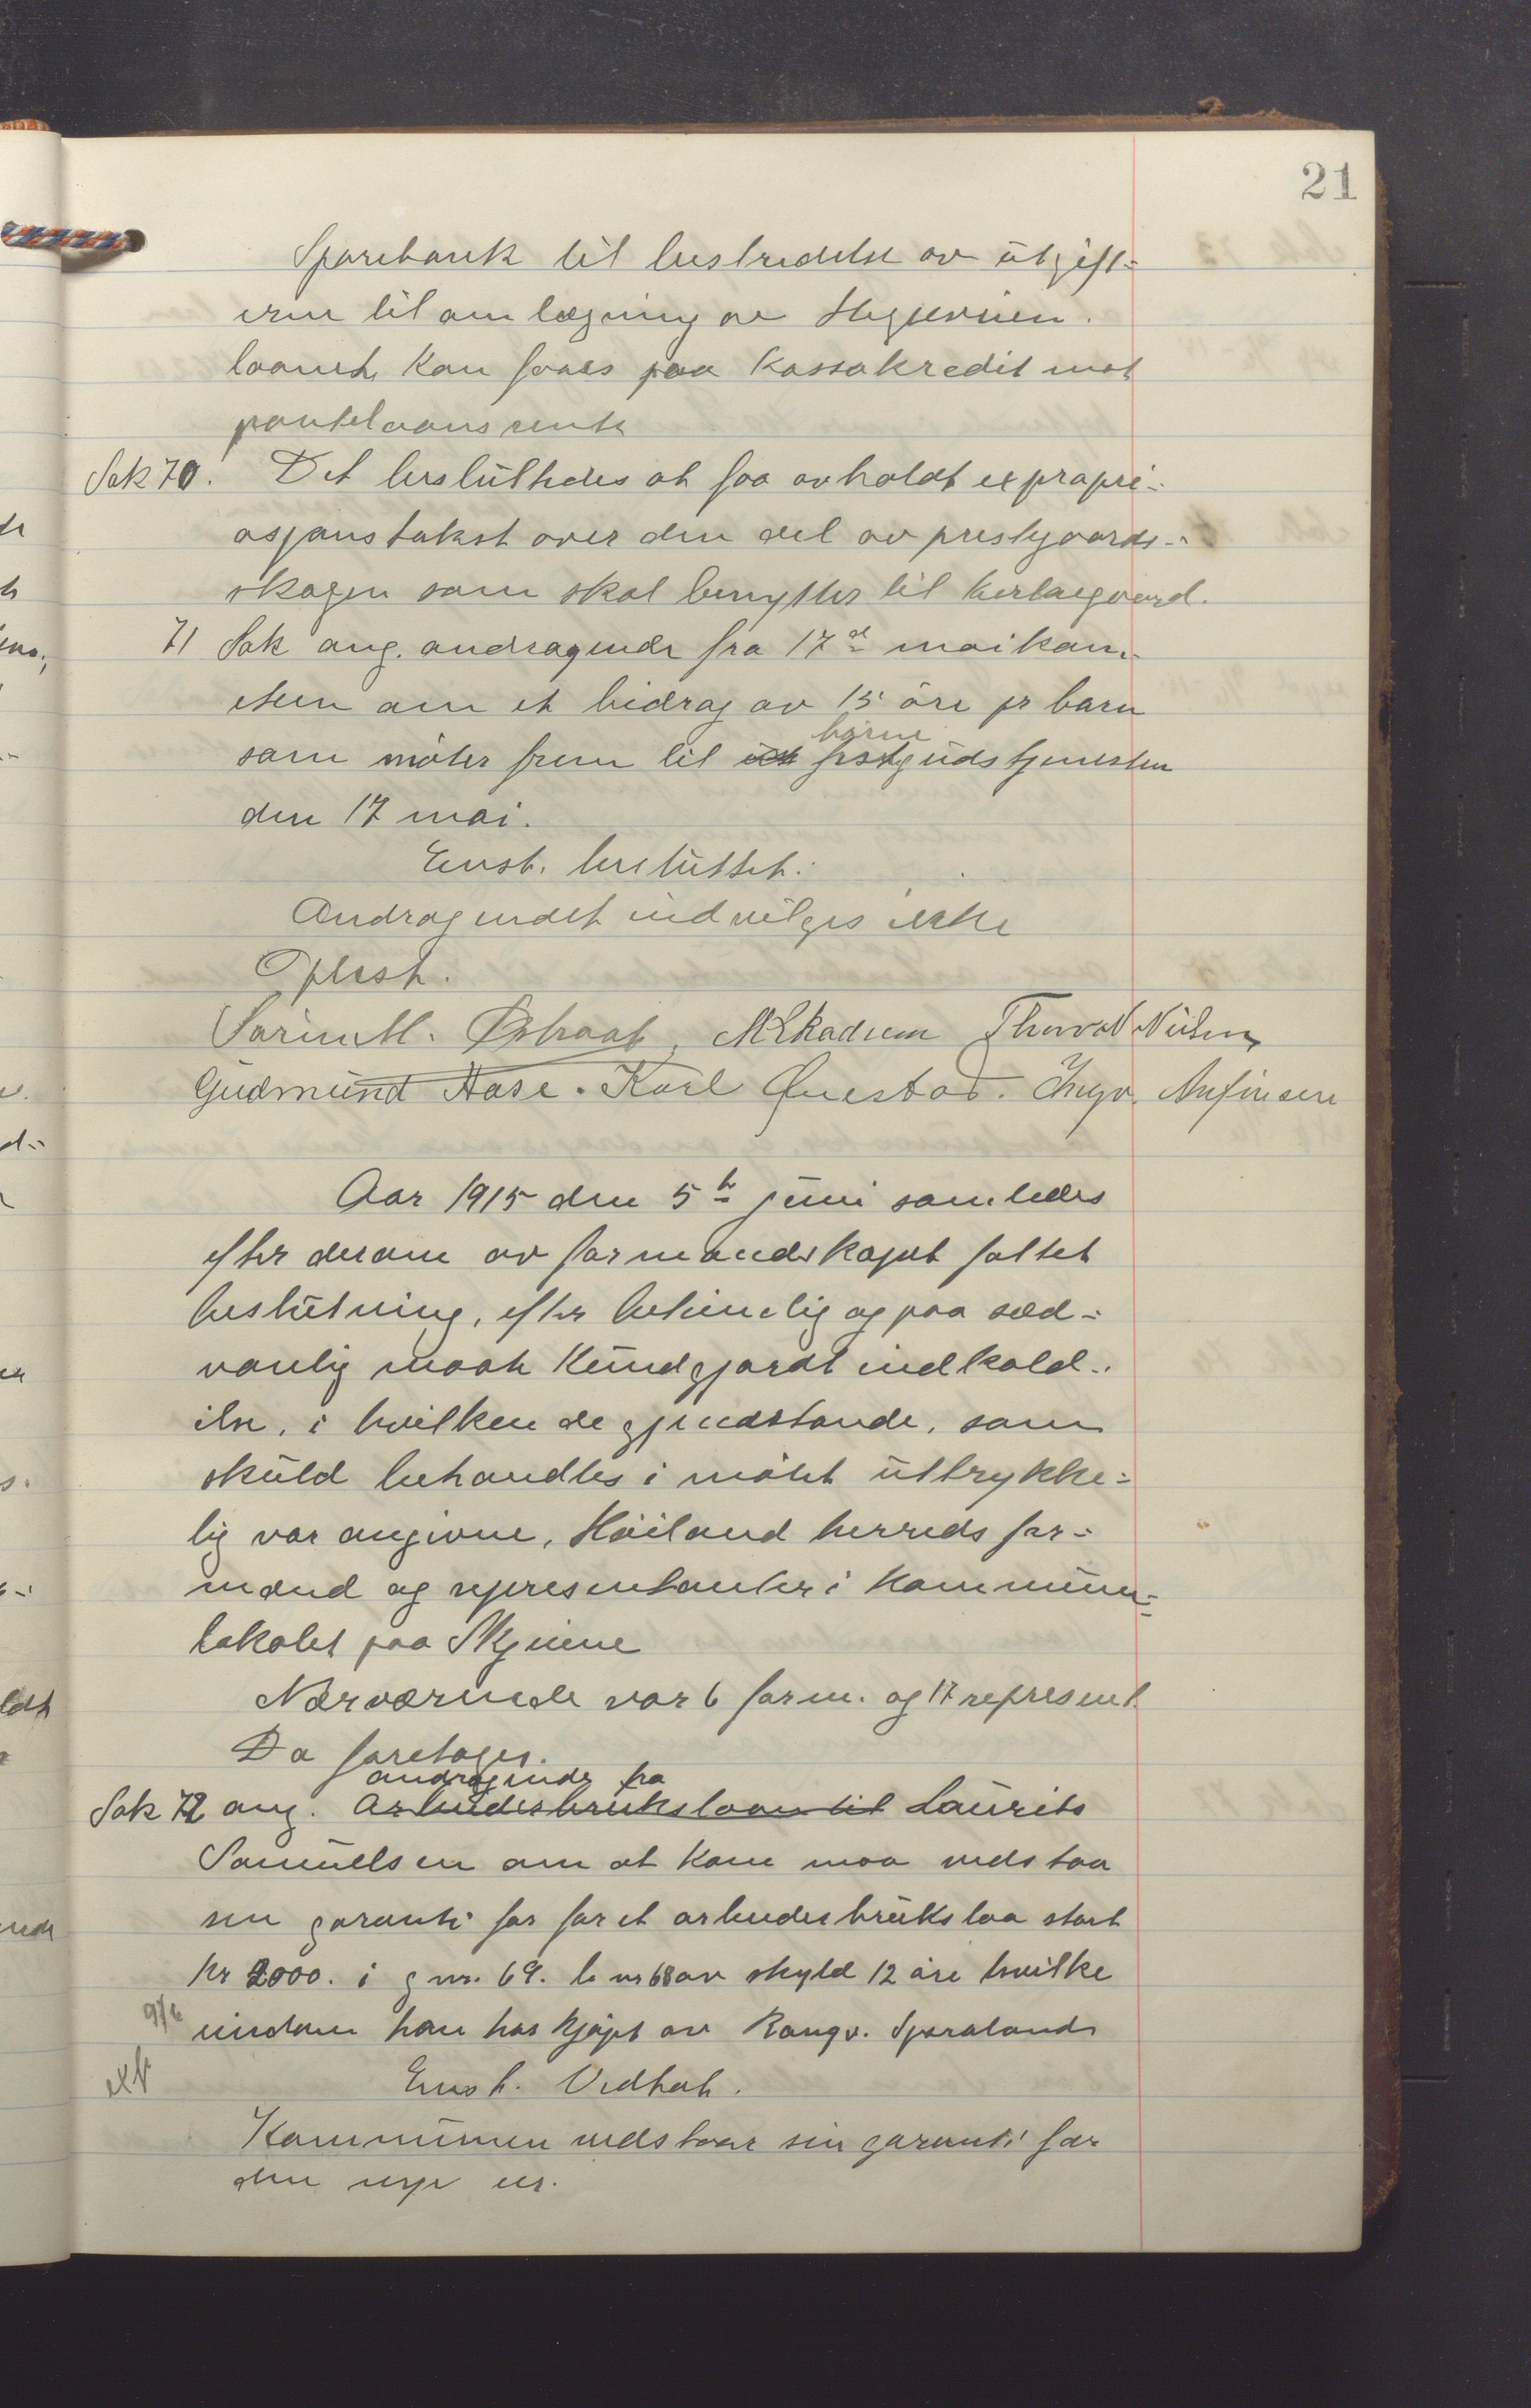 21
Sparebank til bestridelse av utgift-
erne til omlægning av
laanet kan faaes paa Kassakredit mot
pantelaansrente
Sak 70. Det besluttedes at faa avholdt expropri-
asjonstakst over den del av prestgaards-
skogen som skal benyttes til kirkegaard.
71 Sak ang. andragende fra 17de maikom-
iteen om et bidrag av 15 öre pr barn
börne
som möter frem til festgudstjenesten
den 17 mai.
Enst. besluttet:
Andragendet indvilges ikke
Oplest.
Sörin M. Østraat, M Skadsem Thorvald Nielsen
Gudmund Aase. Karl Qvestad. Ingv. Anfinsen
Aar 1915 den 5te juni samledes
efter derom av formandskapet fattet
beslutning, efter betimelig og paa sæd-
vanlig maate kundgjordt indkald-
else, i hvilken de gjendstande, som
skuld behandles i mötet uttrykke-
lig var angivne, Höiland herreds for-
mænd og representanter i kommune-
lokalet paa Skjeiene
Nærværende var 6 form. og 17 represent.
Da foretoges.
andragende fra
Sak 72 ang. Arbeiderbrukslaan til Laurits
Samuelsen om at kom maa vedstaa
sin garanti for for et arbeiderbrukslaa stort
Kr 2000. i g nr. 69. b nr 68 av skyld 12 öre hvilke
9/6 eiendom han har kjöpt av Rangv. Sporaland
Enst. Vedtat.
Kommunen vedstaar sin garanti for
den nye eier.